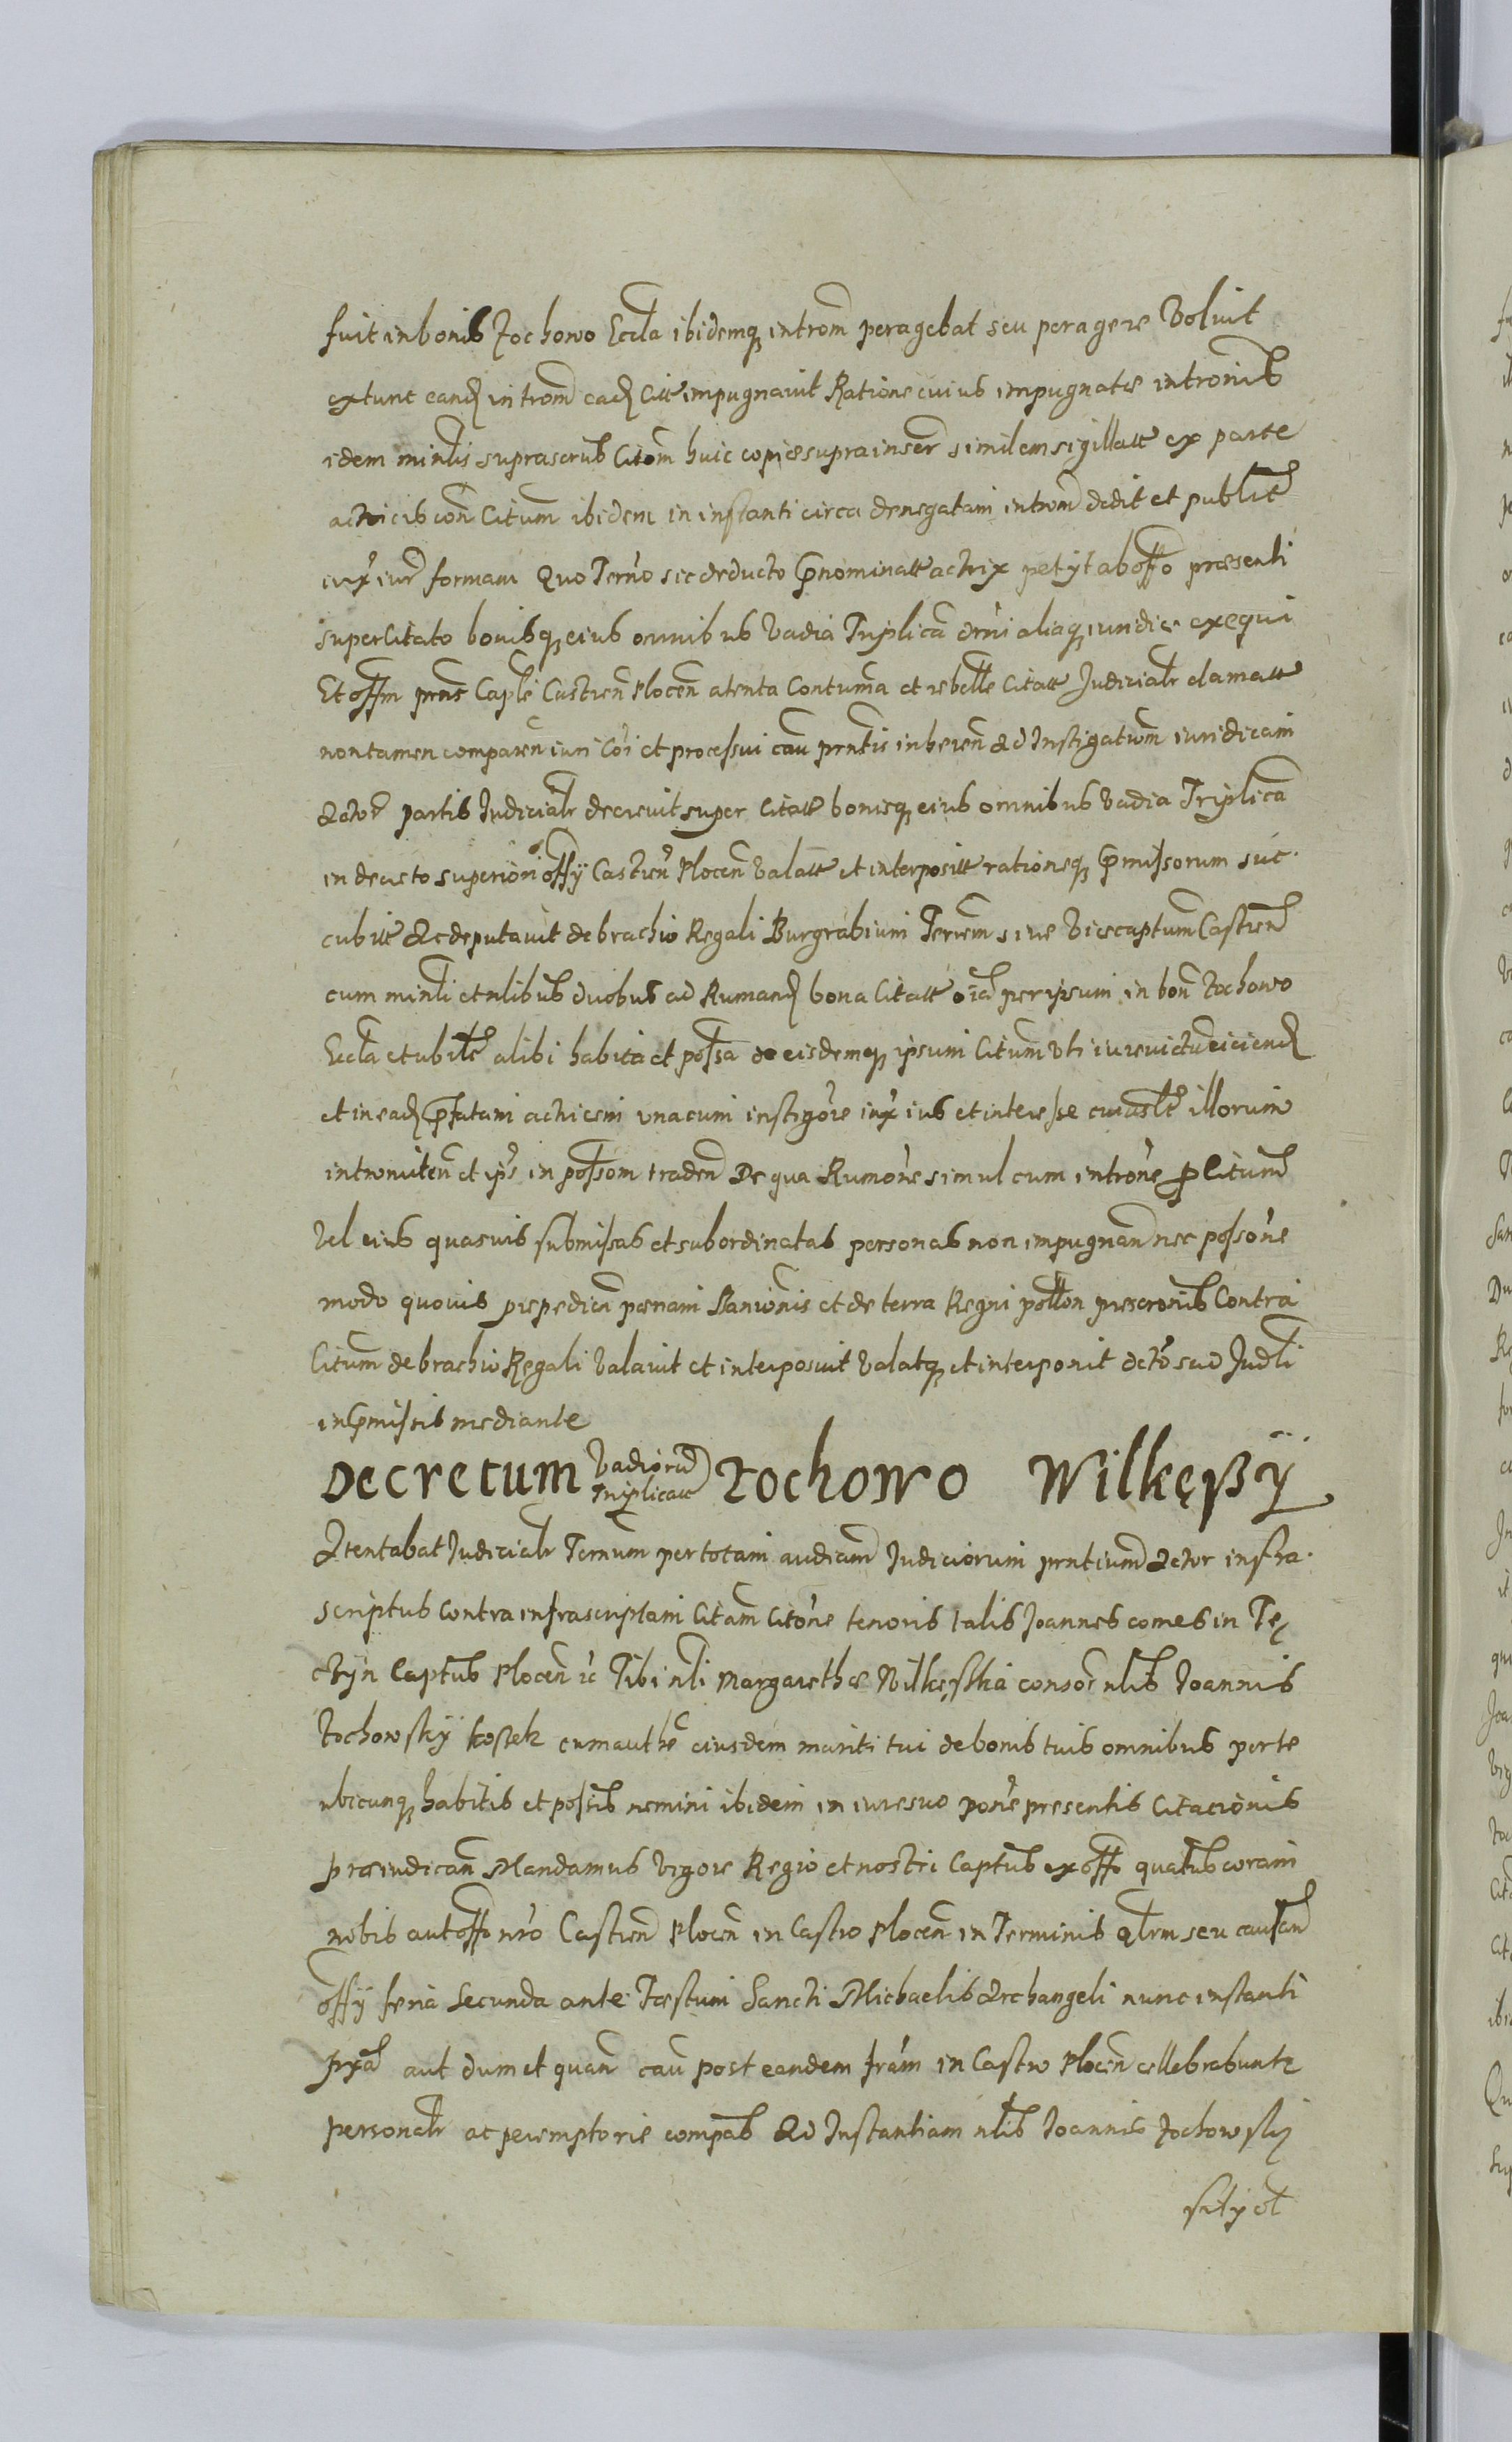 fuit in bonis Rochowo Eccla ibidemq introm̄ peragebat seu peragere Voluit
extunc eand in trom̄ ead Citt impugnavit Ratione cuius impugnatæ intronib
idem minlis suprascrub Citom̄ huic copiæ supra inser similem sigillatt ex parte
actricis con Citum ibidem in instanti circa denegatam introm̄ dedit et publice
iux iur formam Quo Terno sic deducto pnominatt actrix petyt ab offo præsenti
super Citato bonisq eius omnibus Vadia Triplica drni aliaq iuridice exequi
Et offm prns Caple Castren Plocen atenta Contuma et rebelle Citatt Judicialr clamatt
non tamen comparen iuri Coi et processui cau prntis inheren Ad Instigatiom̄ iuridicam
Actor partis Judicialr decrevit super Citatt bonisq eius omnibus Vadia Triplica
in decreto superiori offy Castren Plocen Valatt et interpositt rationeq pmissorum suc-
cubitt Ac deputavit de brachio Regali Burgrabium Terrem sive Vicecaptum Castren
cum minli et nlibus duobus ad Rumand bona Citatt oia per ipsum in bon Rochowo
Eccla et ubilt alibi habita et possa de eisdemq ipsum Citum Uti iurevictu eiciend
et in ead pfatam actricem unacum instigore iux ius et interesse cuiuslt illorum
intromiten et ips in possom traden De qua Rumone simul cum introne p Citum
Vel eius quasvis submissas et subordinatas personas non impugnan nec possone
modo quovis prepedien pœnam Banionis et de terra Regni pollon prescronib Contra
Citum de brachio Regali Valavit et interposuit Valatq et interponit dcto suo Judli
in pmissis mediante
Decretum Vadioru Triplicatt Rochowo Wilkęßÿ
Atentabat Judicialr Ternum per totam audiam Judiciorum prntium Actor infra-
scriptus contra infrascriptam Citam Citone tenoris talis Joannes comes in Tę
czyn Captus Plocen &c Tibi nli Margarethæ Wilkęska consor nlis Joannis
Rochowsky kostek cum authe eiusdem mariti tui de bonis tuis omnibus per te
ubicunq habitis et possis nemini ibidem in iure suo pone presentis Citacionis
præiudican Mandamus Vigore Regio et nostri Captus ex offo quatus coram
nobis aut offo nro Castren Plocen in Castro Plocen in Terminis qlrm seu causan
offy feria Secunda ante Fæstum Sancti Michaelis Archangeli nunc instanti
pxa aut dum et quan cau post eandem fram in Castro Plocen cellebrabunte
personalr ac peremptorie compas Ad Instantiam nlis Joannis Rochowsky